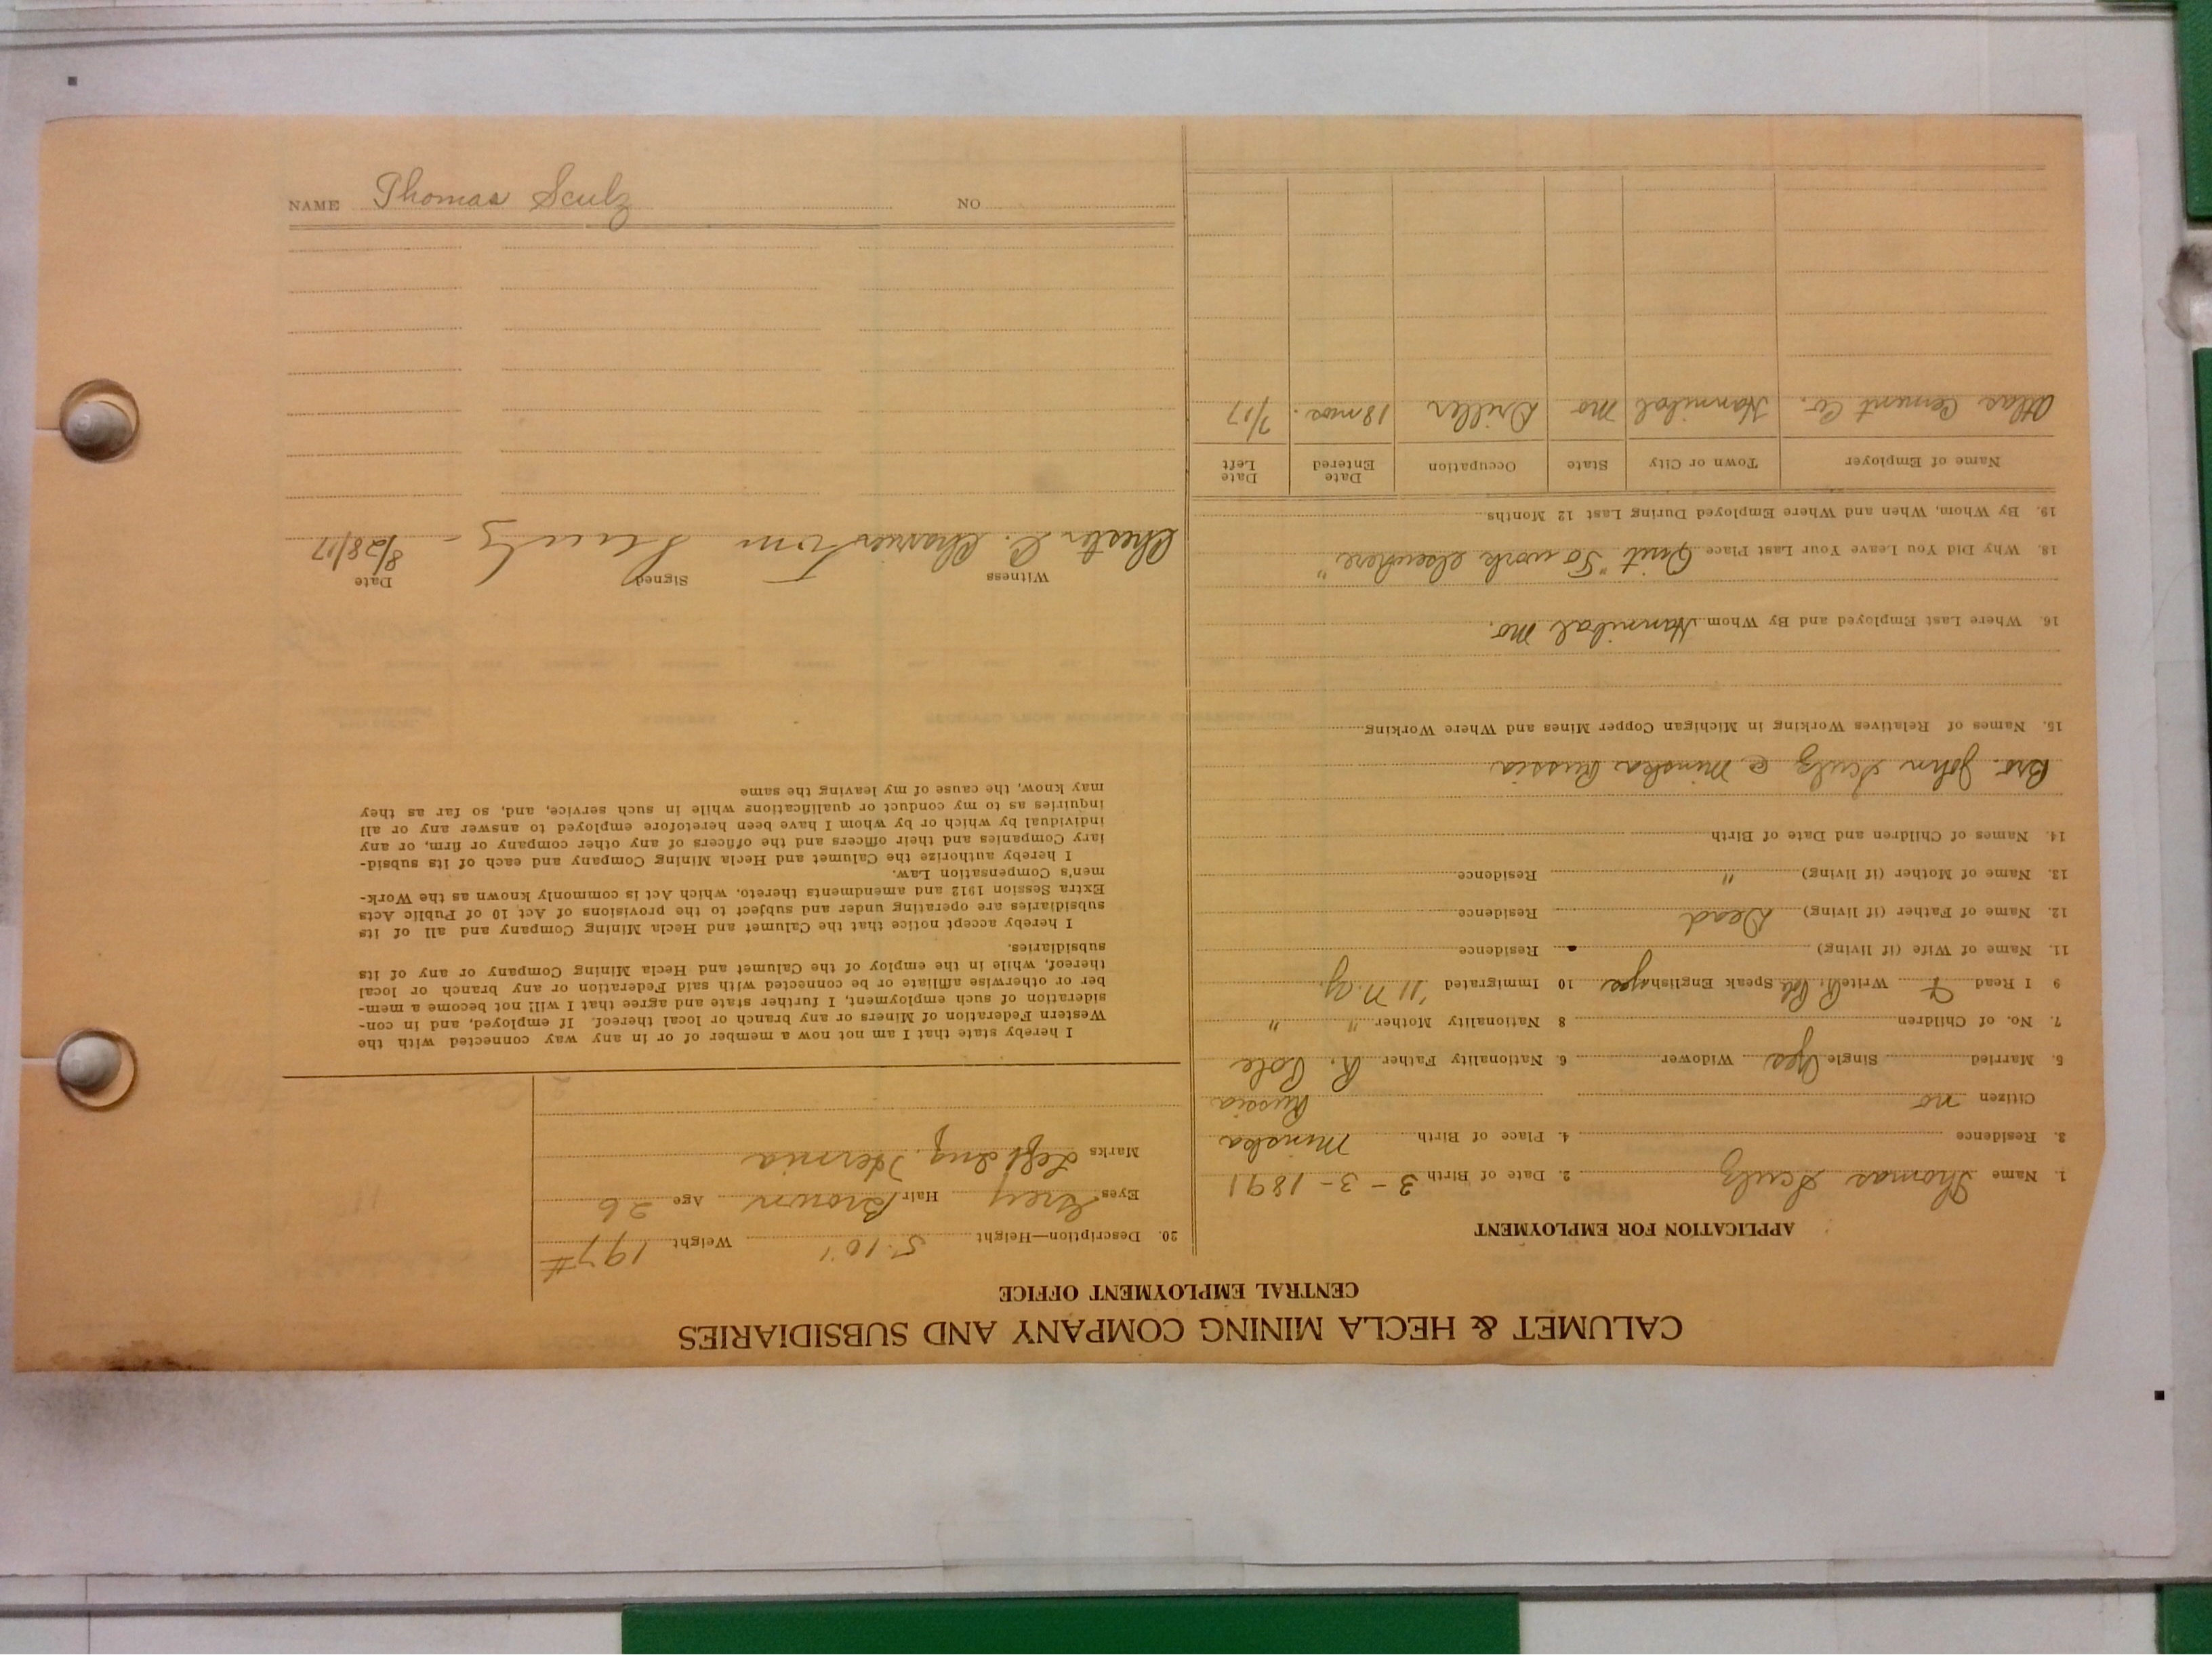 CALUMET & HECLA MINING COMPANY AND SUBSIDIARIES
CENTRAL EMPLOYMENT OFFICE
APPLICATION FOR EMPLOYMENT
1. Name Thomas Sculz 2. Date of Birth 3-3-1891
3. Residence 4. Place of Birth Minska
Citizen no Russia
5. Married Single Yes Widower 6. Nationality Father R. Pole
7. No. of Children 8 Nationality Mother " "
9 I Read & Write R. Pole Speak English yes 10 Immigrated '11 N.Y.
11. Name of Wife (if living) Residence
12. Name of Father (if living) Dead Residence
13. Name of Mother (if living) " Residence
14. Names of Children and Date of Birth
Bro. John Sculz @ Minska Russia
15. Names of Relatives Working in Michigan Copper Mines and Where Working
16. Where Last Employed and By Whom Hannibal Mo.
18. Why Did You Leave Your Last Place Quit "To work elsewhere"
19. By Whom, When and Where Employed During Last 12 Months
Name of Employer Town or City State Occupation Date Entered Date Left
Atlas Cement Co. Hannibal Mo Driller 18 mos. 7/17
20. Description—Height 5'10" Weight 197#
Eyes Grey Hair Brown Age 26
Marks Left Ing. Hernia
I hereby state that I am not now a member of or in any way connected with the
Western Federation of Miners or any branch or local thereof. If employed, and in con-
sideration of such employment, I further state and agree that I will not become a mem-
ber or otherwise affiliate or be connected with said Federation or any branch or local
thereof, while in the employ of the Calumet and Hecla Mining Company or any of its
subsidiaries.
I hereby accept notice that the Calumet and Hecla Mining Company and all of its
subsidiaries are operating under and subject to the provisions of Act 10 of Public Acts
Extra Session 1912 and amendments thereto, which Act is commonly known as the Work-
men's Compensation Law.
I hereby authorize the Calumet and Hecla Mining Company and each of its subsid-
iary Companies and their officers and the officers of any other company or firm, or any
individual by which or by whom I have been heretofore employed to answer any or all
inquiries as to my conduct or qualifications while in such service, and, so far as they
may know, the cause of my leaving the same
Witness Signed Date
Chester C. Tom 8/28/17
NAME Thomas Sculz NO